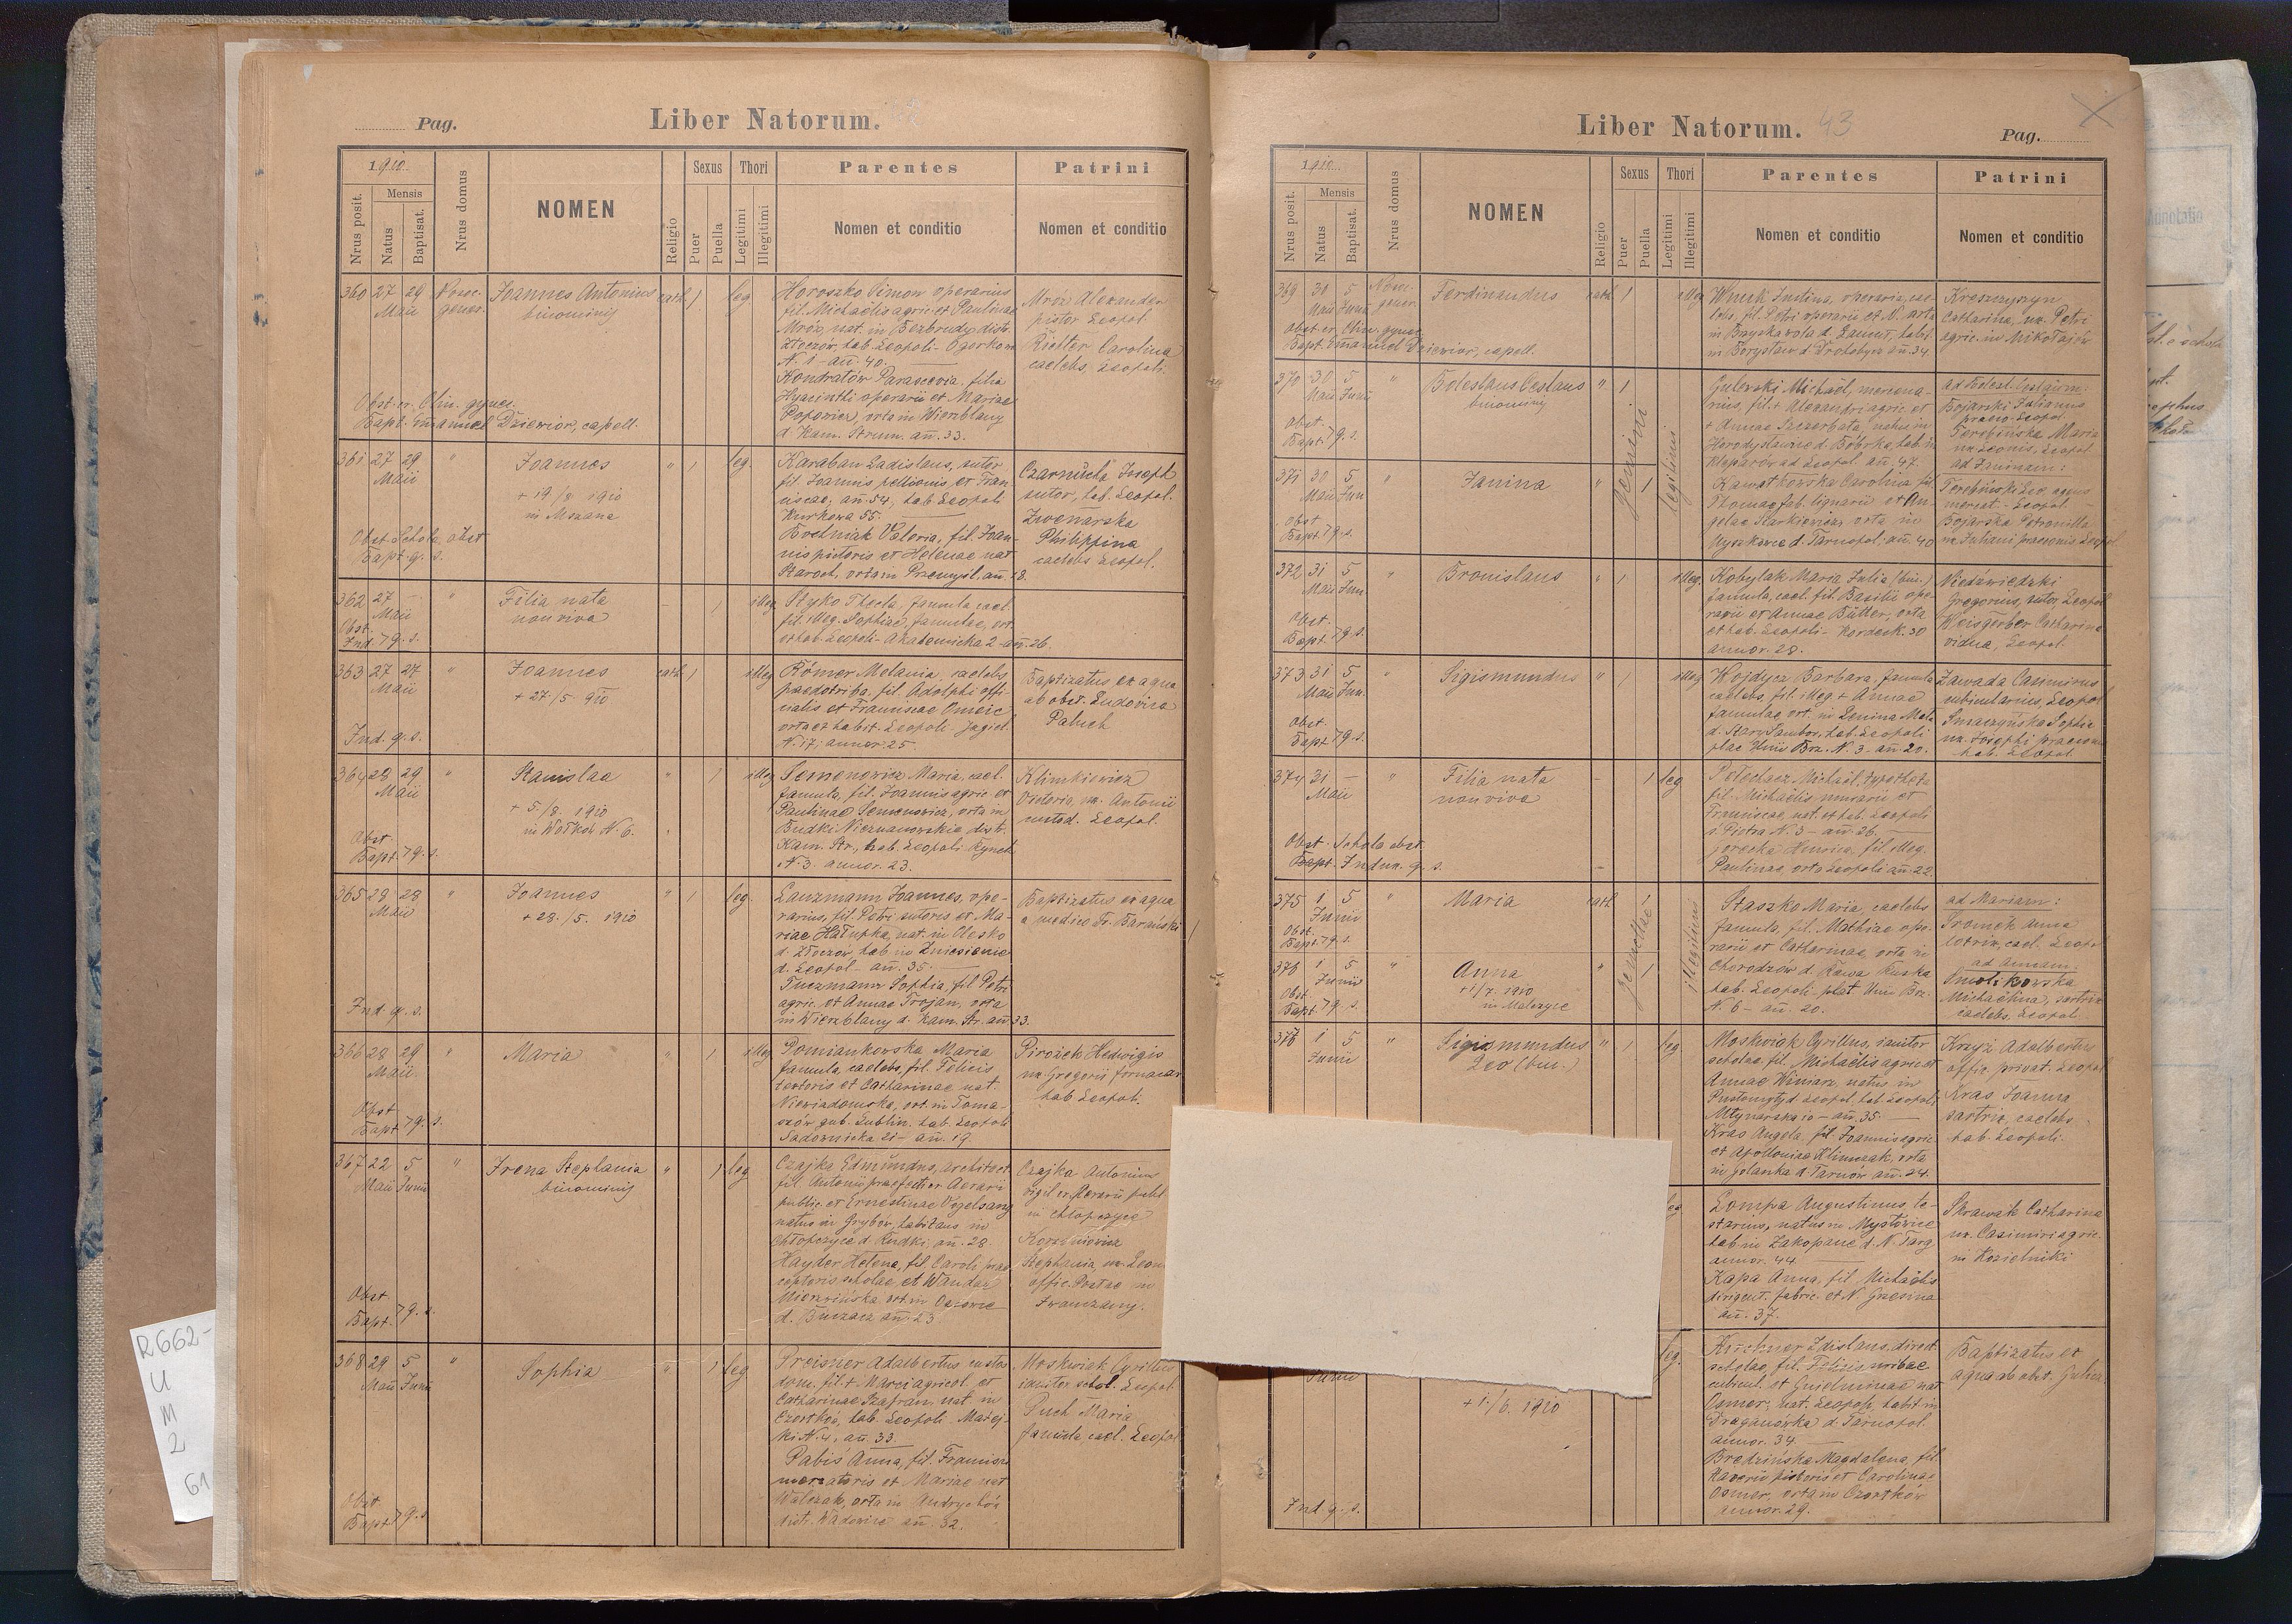 Pag.
Liber Natorum.
1910
Nrus posit.
Mensis
Natus
Baptisat.
Nrus domus
NOMEN
Religio
Sexus
Puer
Puella
Thori
Legitimi
Illegitimi
Parentes
Nomen et conditio
Patrini
Nomen et conditio
360 27 29
Maii
Joannes Antonius
binominis
cath 1 leg
Horoszko Simon operarius
fil. Michaëlis agric. et Paulinae
Mroz, nat. in Bezbrudy distr.
Złoczów, hab. Leopoli - Ogorkowa
N. 1 - an. 40.
Kondratów Parascevia, filia
Hyacinthi operarii et Mariae
Popowicz, orta in Wierzblany
d. Kam. Strum. an. 33.
Mroz Alexander
pistor Leopol.
Richter Carolina
caelebs, Leopoli.
Obst. ex Clin. gynec.
Bapt. Emanuel Dziewior, capell.
361 27 29 "
Maii
Joannes
+ 19/8 1910
in Mszana
" 1 leg.
Karaban Ladislaus, sutor
fil. Joannis pellionis et Fran-
ciscae, an. 54, hab. Leopoli
Kurkowa 55.
Valeria, fil. Joan-
nis pistoris et Helenae nat
orta in Przemyśl, an. 28.
Czarnucha Joseph
sutor, hab. Leopol.
Philippina
caelebs Leopol.
Obst. Schola obst
Bapt. q. s.
362 27 - "
Maii
Filia nata
non viva
- 1 illeg
Styko Thecla, famula cael.
fil. illeg. Sophiae, famulae, ort.
et hab. Leopoli - Akademicka 2 - an. 26.
Obst.
Ind. q. s.
363 27 27 "
Maii
Joannes
+ 27/5 910
cath 1 illeg
Römer Melania, caelebs
paedotriba, fil. Adolphi offi-
cialis et Franciscae
orta et habit. Leopoli Jagiel.
N. 17, annor. 25.
Baptizatus ex aqua
ab obst. Ludovica
Paluch
Ind. q. s.
364 28 29 "
Maii
Stanislaa
+ 5/8. 1910
in Wołków N. 6.
" 1 illeg
Semenowicz Maria, cael.
famula, fil. Joannis agric. et
Paulinae Semenowicz, orta in
Budki Nieznanowskie distr.
Kam. Str., hab. Leopoli Rynek
N. 3. annor. 23.
Klimkiewicz
Victoria, ux. Antonii
custod. Leopol.
Obst
Bapt. q. s.
365 28 28 "
Maii
Joannes
+ 28./5. 1910
" 1 leg.
Lanzmann Joannes, ope-
rarius, fil. Petri sutoris et Ma-
riae Hałupka, nat. in Olesko
d. Złoczów, hab. in Zniesienie
d. Leopol - an. 35.
Tuczmann Sophia, fil Petri
agric. et Annae Trojan, orta
in Wierzblany d. Kam. Str. an 33.
Baptizatus ex aqua
a medico Fr. Barański
Ind. q. s.
366 28 29 "
Maii.
Maria
" 1 illeg
Pomiankowska Maria
famula, caelebs, fil. Felicis
textoris et Catharinae nat.
Niewiadomska, ort. in Toma-
szów gub. Lublin. hab. Leopoli
Sadownicka 21 - an. 19.
Pirożek Hedwigis
ux. Gregorii fornacar
hab Leopoli.
Obst
Bapt. q. s.
367 22 5 "
Maii Junii
Irena Stephania
binominis
" 1 leg
Czajka Edmundus, architect
fil. Antonii praefecti ex Aerarii
public. et Ernestinae Vogelsang
natus in Grybów, habitans in
Chłopczyce d. Rudki, an. 28.
Hayder Helena, fil. Caroli prae
ceptoris scholae, et Wandae
Mierzwińska
d. Buczacz an. 23
Czajka Antonius
vigil ex Aerarii publ
in Chłopczyce
Stephania, ux. Leon
offic. Postae in
Obst
Bapt. q. s.
368 29 5 "
Maii Junii
Sophia
" 1 leg
Preisner Adalbertus custos
dom. fil. + Marci agricol. et
Catharinae Szafran, nat in
hab. Leopoli Matej-
ki N. 4, an. 33.
Pabiś Anna, fil. Francisci
mercatoris et Mariae nat
Walczak, orta in Andrychów
distr. Wadowice an. 32.
Moskwiak Cyrillus
janitor schol. Leopol.
Puch Maria
famula cael. Leopol
Obst
Bapt. q. s.
Liber Natorum. 43
Pag.
1910
Nrus posit.
Mensis
Natus
Baptisat.
Nrus domus
NOMEN
Religio
Sexus
Puer
Puella
Thori
Legitimi
Illegitimi
Parentes
Nomen et conditio
Patrini
Nomen et conditio
369 30 5
Maii Junii
Ferdinandus
cath 1 illeg
Wnuk Justina, operaria, cae-
lebs, fil. Petri operarii et N. orta
in Brzyska wola d. Łańcut, habit.
in Borysław d. Drohobycz an. 34.
Kreszczyszyn
Catharina, ux. Petri
agric. in Mikołajów
Obst. ex Clin. gynec
Bapt. Emanuel Dziewior, capell.
370 30 5 "
Maii Junii
Boleslaus Ceslaus
binominis
" 1
Gulerski Michaël, mercena-
rius, fil. + Alexandri agric. et
+ Annae Szczerbata, natus in
Horodysławice d. Bóbrka, hab. in
Kleparów ad Leopol. an. 47.
ad Bolesl. Ceslaum:
Bojarski Julianus
praeco Leopol.
Terebińska Maria
ux. Leonis, Leopol.
Obst.
Bapt. q. s.
gemini
legitimus
371 30 5 "
Maii Jun
Janina
" 1
Kawałkowska Carolina fil.
Thomae fab. lignarii et An-
gelae Starkiewicz, orta in
d. Tarnopol, an. 40
ad Janinam:
Terebiński Leo, agens
mercat - Leopol -
Bojarska Petronilla
ux. Juliani praeconis Leopol
Obst
Bapt. q. s.
372 31 5 "
Maii Jun
Bronislaus
" 1 illeg.
Kobylak Maria Julia (bin.)
famula, cael. fil. Basilii ope-
rarii et Annae Bütter, orta
et hab. Leopoli - Kordeck. 30
annor. 28.
Niedźwiedzki
Gregorius, sutor Leopol
Weisgerber Catharina
vidua, Leopol.
Obst.
Bapt. q. s.
373 31 5 "
Maii Jun.
Sigismundus
" 1 illeg
Wojdycz Barbara, famula
caelebs, fil. illeg. + Annae
famulae, ort. in Lenina Mała
d. Stary Sambor, hab. Leopoli
plac Unii Brz. N. 3 - an. 20.
Zawada Casimirus
cubicularius, Leopol
Smaczyńska Sophia
ux. Josephi
hab. Leopol.
Obst.
Bapt. q. s.
374 31 - "
Maii
Filia nata
non viva
- 1 leg
Michaël, typotheta
fil. Michaëlis murarii et
Franciscae, nat. et hab. Leopoli
s. Piotra N. 3 - an. 26.
Henrica, fil. illeg.
Paulinae, orta Leopoli an. 22.
Obst. Schola obst.
Bapt. Indun. q. s.
375 1 5 "
Junii
Maria
cath 1
Staszko Maria, caelebs
famula, fil. Mathiae ope-
rarii et Catharinae, orta in
Chorodzów d. Rawa Ruska
hab. Leopoli - plat. Unii Brz.
N. 6 - an. 20.
ad Mariam:
Sromek Anna
lotrix, cael. Leopol
Obst.
Bapt. q. s.
gemellae
illegitimus
376 1 5 "
Junii
Anna
+ 1/7. 1910
in Malczyce
" 1
ad Annam:
Smolikowska
Michaëlina, sartrix
caelebs. Leopol.
Obst
Bapt. q. s.
376 1 5 "
Junii
Sigismundus
Leo (bin.)
" 1 leg
Moskwiak Cyrillus, janitor
scholae, fil. Michaëlis agric. et
Annae Winiarz, natus in
Pustomyty d. Leopol. hab. Leopoli
Młynarska 10 - an. 35.
Kras Angela, fil. Joannis agric.
et Apolloniae Klimczak, orta
in Jolanka d. Tarnów an. 24.
Krzyż Adalbertus
offic. privat. Leopol
Kras Joanna
sartrix, caelebs
hab. Leopoli.
leg
Lompa Augustinus,
natus in Mysłowice
hab. in Zakopane d. N. Targ
annor. 44
Kapa Anna, fil. Michaëlis
dirigent. fabric. et N.
an. 37.
Skrawak Catharina
ux. Casimiri agric.
in Kozielniki
Junii
+ 1./6. 1910
leg.
Kirchner Zdislaus, direct.
scholae, fil. Felicis
et Guielminae nat
Osmer, nat. Leopoli, habit in
Draganówka d. Tarnopol.
annor. 34.
Bredzińska Magdalena, fil.
Xaverii pistoris et Carolinae
Osmer, orta in Czortków
annor. 29.
Baptizatus ex
aqua ab obst.
Ind q. s.
R662-
U
M
2
61